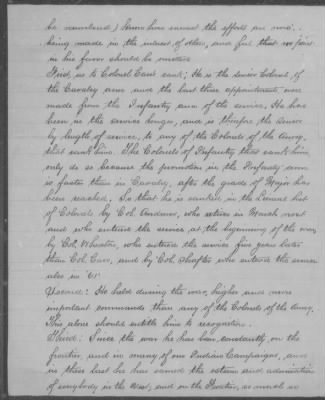 be numbered) know how earnest the efforts are now
being made in the interest of others, and feel that no point
in his favor should be omitted
First, as to Colonel Carr's rank; He is the senior Colonel, of
the Cavalry arm and the last three appointments were
made from the Infantry arm of the service. He has
been in the service longer, and is therefore the senior
by length of service, to any of the Colonels of the Army,
that rank him. The Colonels of Infantry that rank him
only do so because the promotion in the Infantry arm
is faster than in Cavalry, after the grade of Major has
been reached. So that he is ranked in the Lineal list
of Colonels by Col. Andrews, who retires in March next
and who entered the service at the beginning of the war,
by Col. Wheaton, who entered the service five years later
than Col. Carr, and by Col. Shafter who entered the service
also in '61
Second: He held during the war, higher and more
important commands than any of the Colonels of the Army.
This alone should entitle him to recognition.
Third: Since the war he has been constantly on the
frontier, and in many of our Indian Campaigns, and
in these last he has earned the esteem and admiration
of everybody in the West, and on the Frontier, as much so